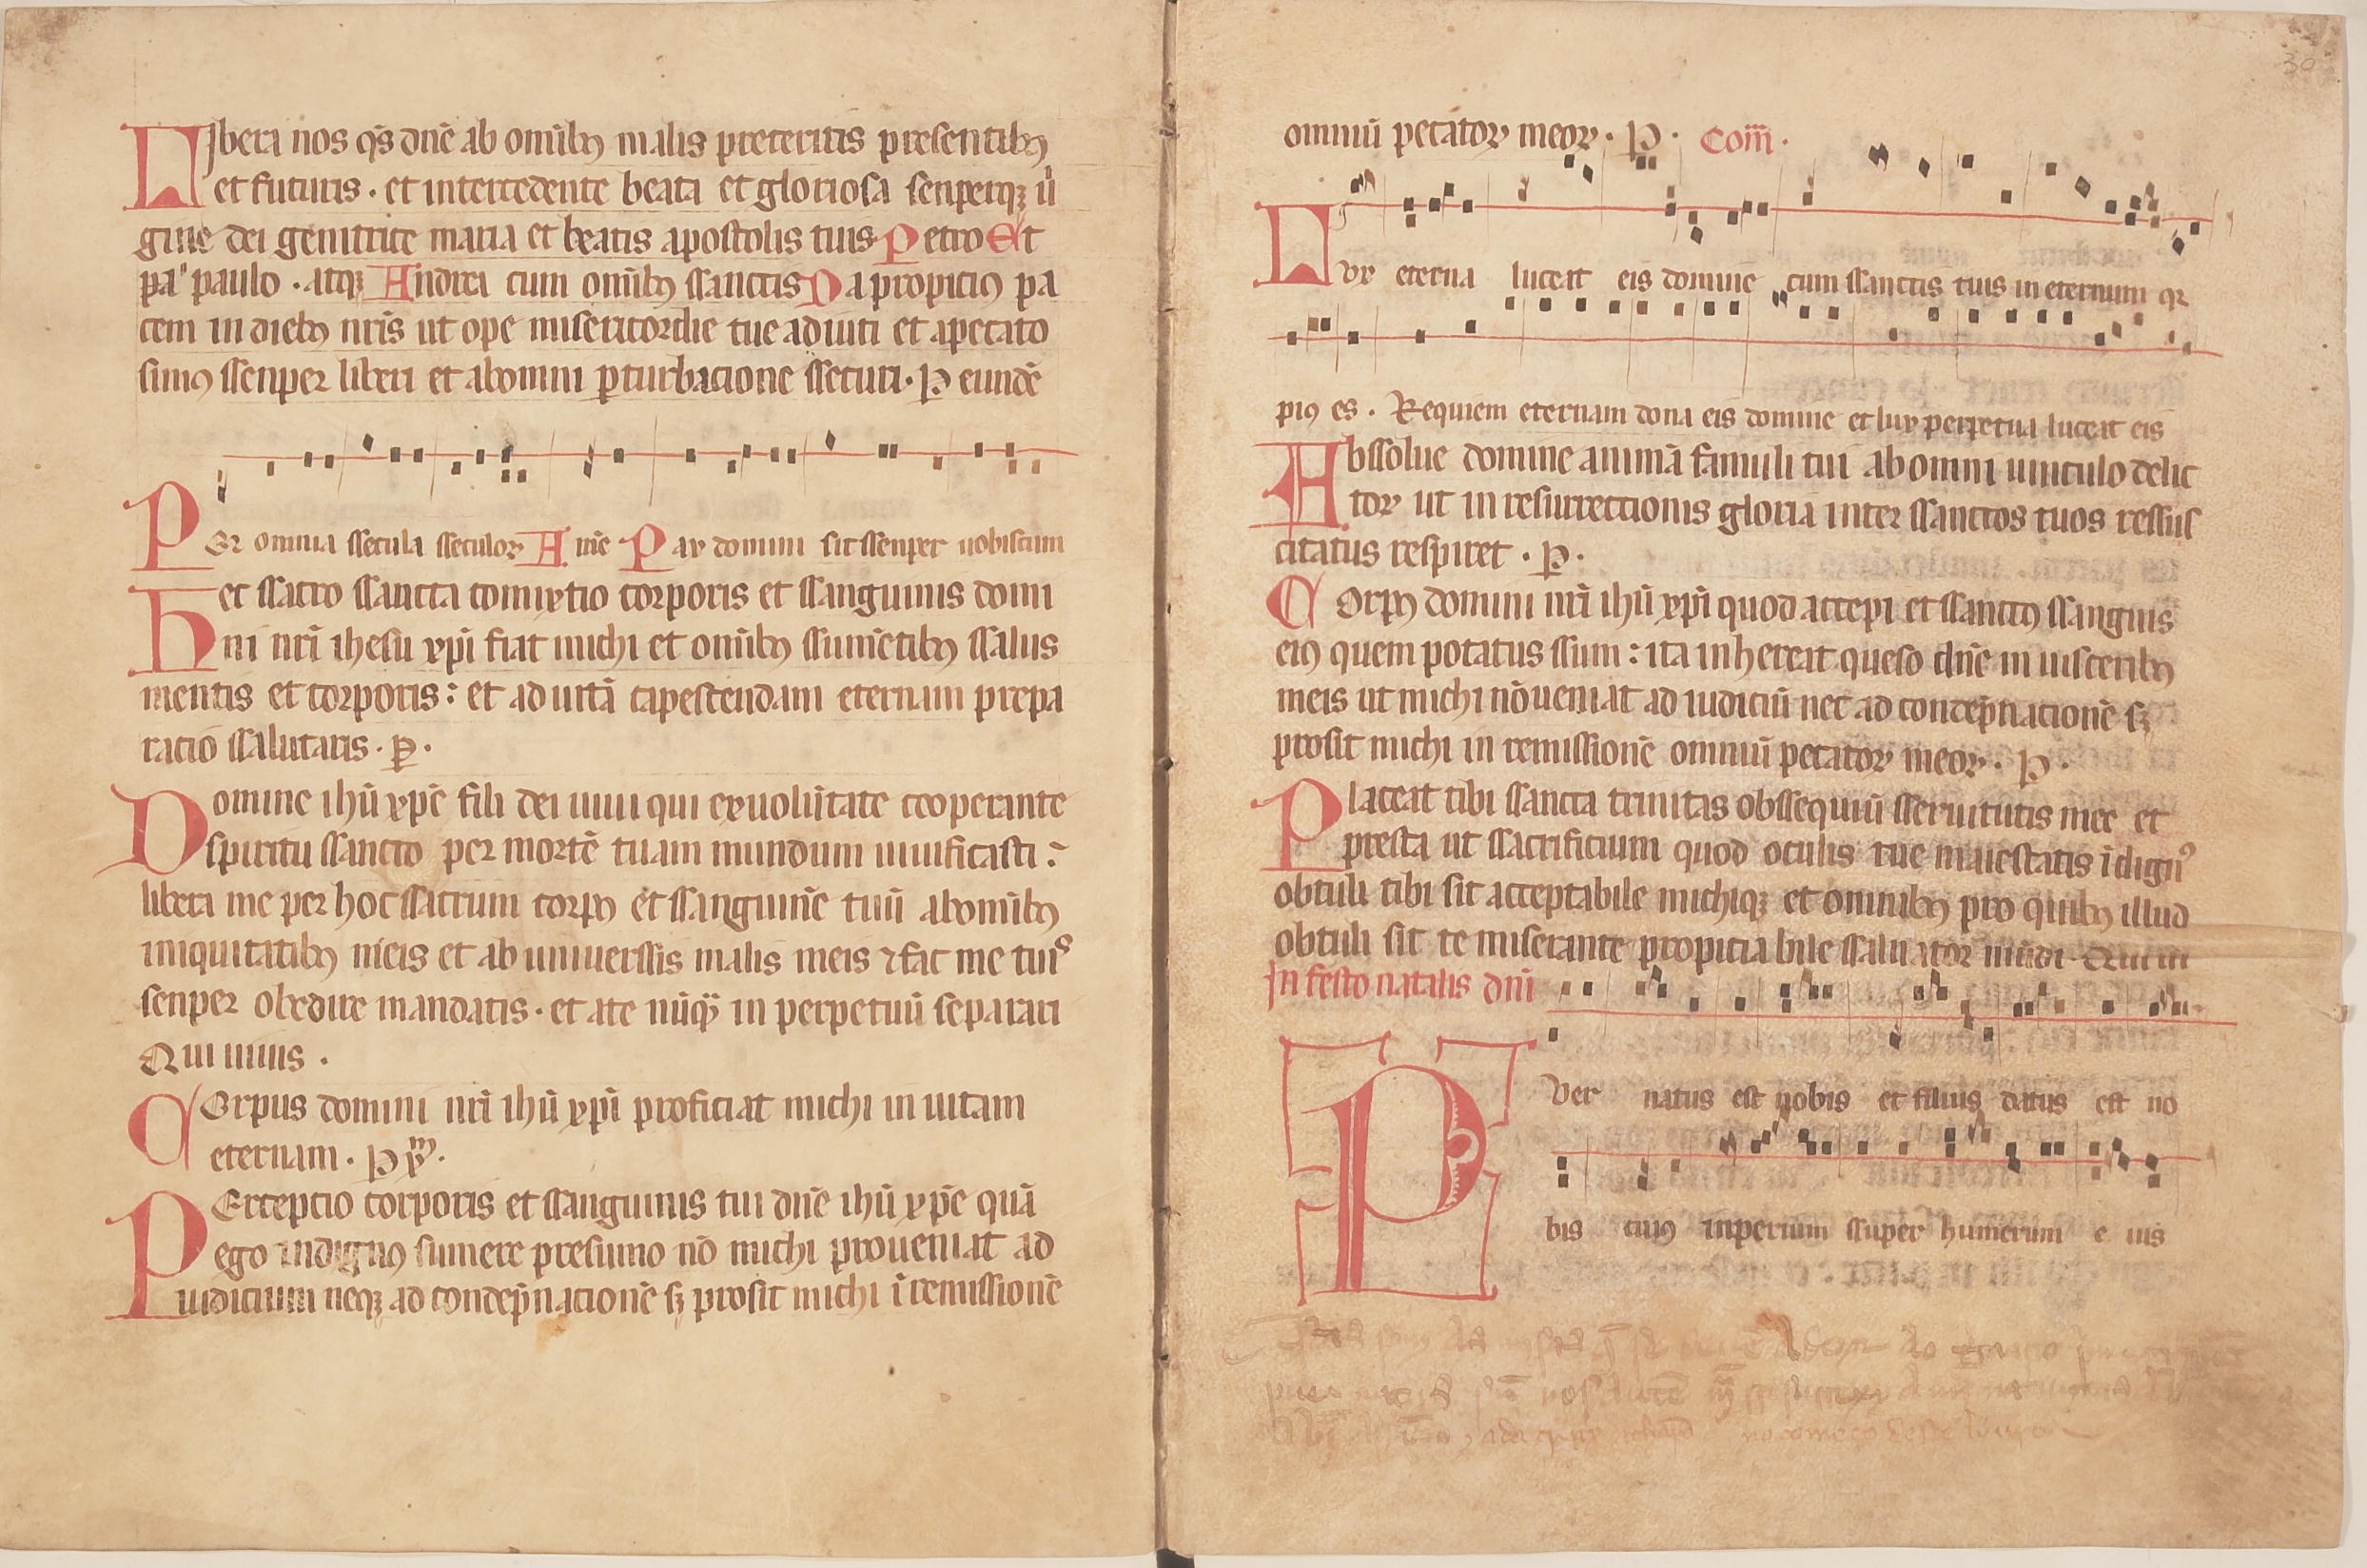 Libera nos q̄s dnē ab omībꝰ malis preteritis presentibꝰ
et futuris · et intercedente beata et gloriosa senperqꝫ ūi
gine dei genitrice maria et beatis apostolis tuis Petro Et
paulo · atqꝫ Andrea cum omībꝰ ssanctis Da propiciꝰ pa
cem in diebꝰ nr̄is ut ope misericordie tue adiuti et apecato
simꝰ ssenper liberi et abomni ꝑturbacione sseturi · P̱ eundē
PEr omnia ssecula sseculoꝝ A mē Pax domini sit ssenper uobiscum
Hec ssacro ssancta comixtio corporis et ssanguinis domi
ni nr̄i ihesu xp̄i fiat michi et omībꝰ ssumētibꝰ ssalus
mentis et corporis : et ad uitā capescendam eternam prepa
racio ssalutaris · P̱ ·
Domine ihū xp̄e fili dei uiui qui exuolūtate cooperante
spiritu ssancto per mortē tuam mundum uiuificasti :
libera me per hoc ssacrum corpꝰ et ssanguinē tuū abomībꝰ
iniquitatibꝰ meis et ab uniuerssis malis meis ⁊ fac me tuis
senper obedire mandatis · et ate nūqᷓ in perpetuū separari
Qui uiuis ·
COrpus domini nr̄i ihū xp̄i proficiat michi in uitam
eternam · P̱ xᷟ ·
PErceptio corporis et ssanguinis tui dnē ihū xp̄e quā
ego indignꝰ sumere presumo nō michi proueniat ad
iudicium neqꝫ ad condep̄nacionē sꝫ prosit michi ī remissionē
30
omniū pecatoꝝ meoꝝ · P̱ · Com̄ ·
Lux eterna luceat eis domine cum ssanctis tuis in eternum qꝛ
piꝰ es . Requiem eternam dona eis domine et lux perpetua luceat eis
Abssolue domine animā famuli tui ab omni uinculo delic
toꝝ ut in resurrectionis gloria inter ssanctos tuos ressus
citatus respiret · P̱ ·
COrpꝰ domini nr̄i ihū xp̄i quod accepi et ssanctꝰ ssanguis
eiꝰ quem potatus ssum : ita inhereat queso dnē in uisceribꝰ
meis ut michi nō ueniat ad iudiciū nec ad condep̄nacionē sꝫ
prosit michi in remissionē omniū pecatoꝝ meoꝝ · P̱ ·
Placeat tibi ssancta trinitas obssequiū sseruitutis mee et
presta ut ssacrificium quod oculis tue maiestatis īdignꝰ
obtuli tibi sit acceptabile michiqꝫ et omnibꝰ pro quibꝰ illud
obtuli sit te miserante propiciabile ssaluator mūdi · Qui ui
In festo natalis dn̄i
PUer natus est nobis et filius datus est no
bis cuiꝰ inperium ssuper humerum e ius